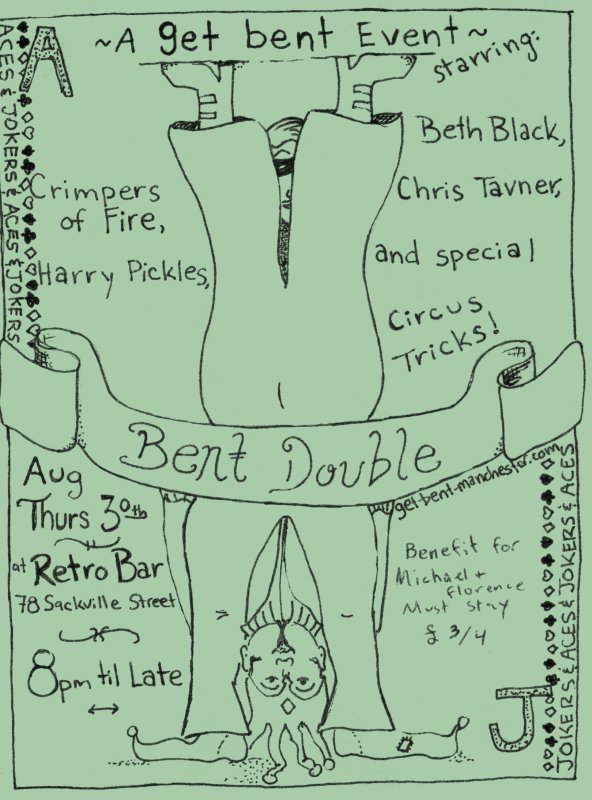 A
~A get bent Event~
starring:
Beth Black,
Chris Tavner,
and special
Circus
Tricks!
Crimpers
of Fire,
Harry Pickles,
ACES & JOKERS & ACES & JOKERS
Bent Double
get-bent-manchestor.com
Aug
Thurs 30th
at Retro Bar
78 Sackville Street
8pm til Late
Benefit for
Michael +
florence
Must stay
£ 3/4
JOKERS & ACES & JOKERS & ACES
J